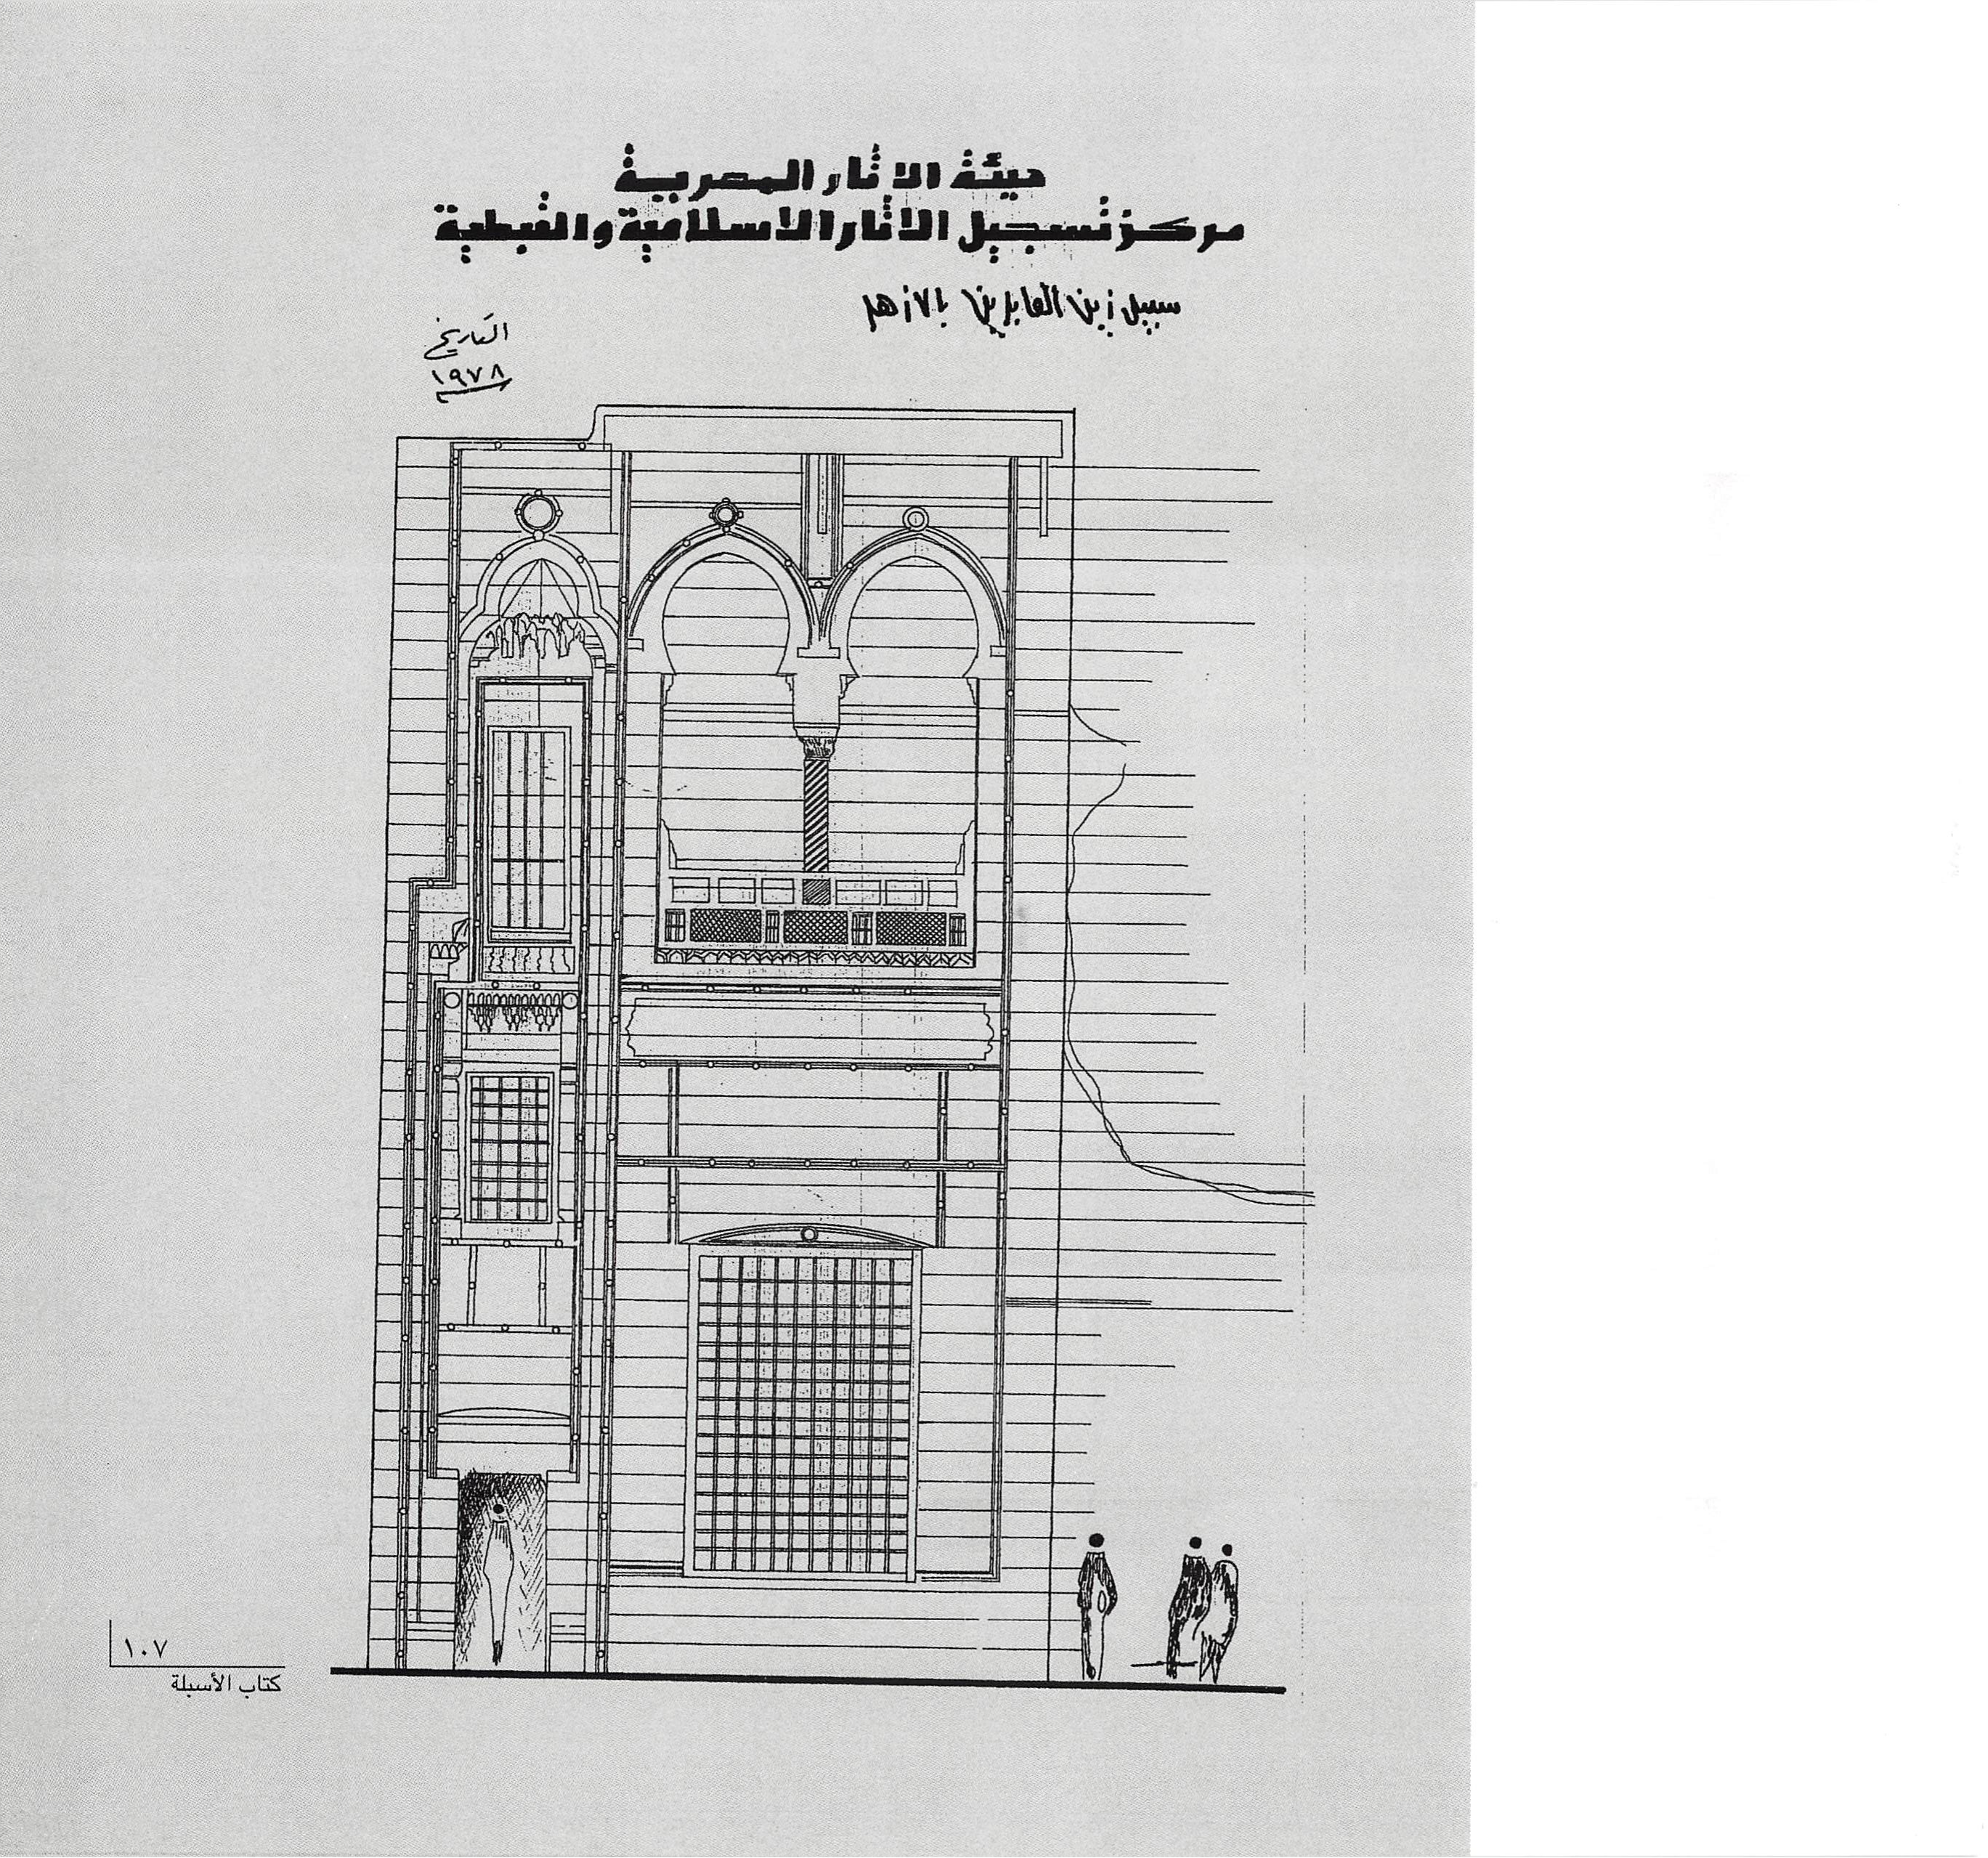 هيئة الاثار المصرية
مركز تسجيل الاثار الاسلامية والقبطية
سبيل زين العابدين بالازهر
التاريخ
١٩٧٨
١٠٧
كتاب الأسبلة